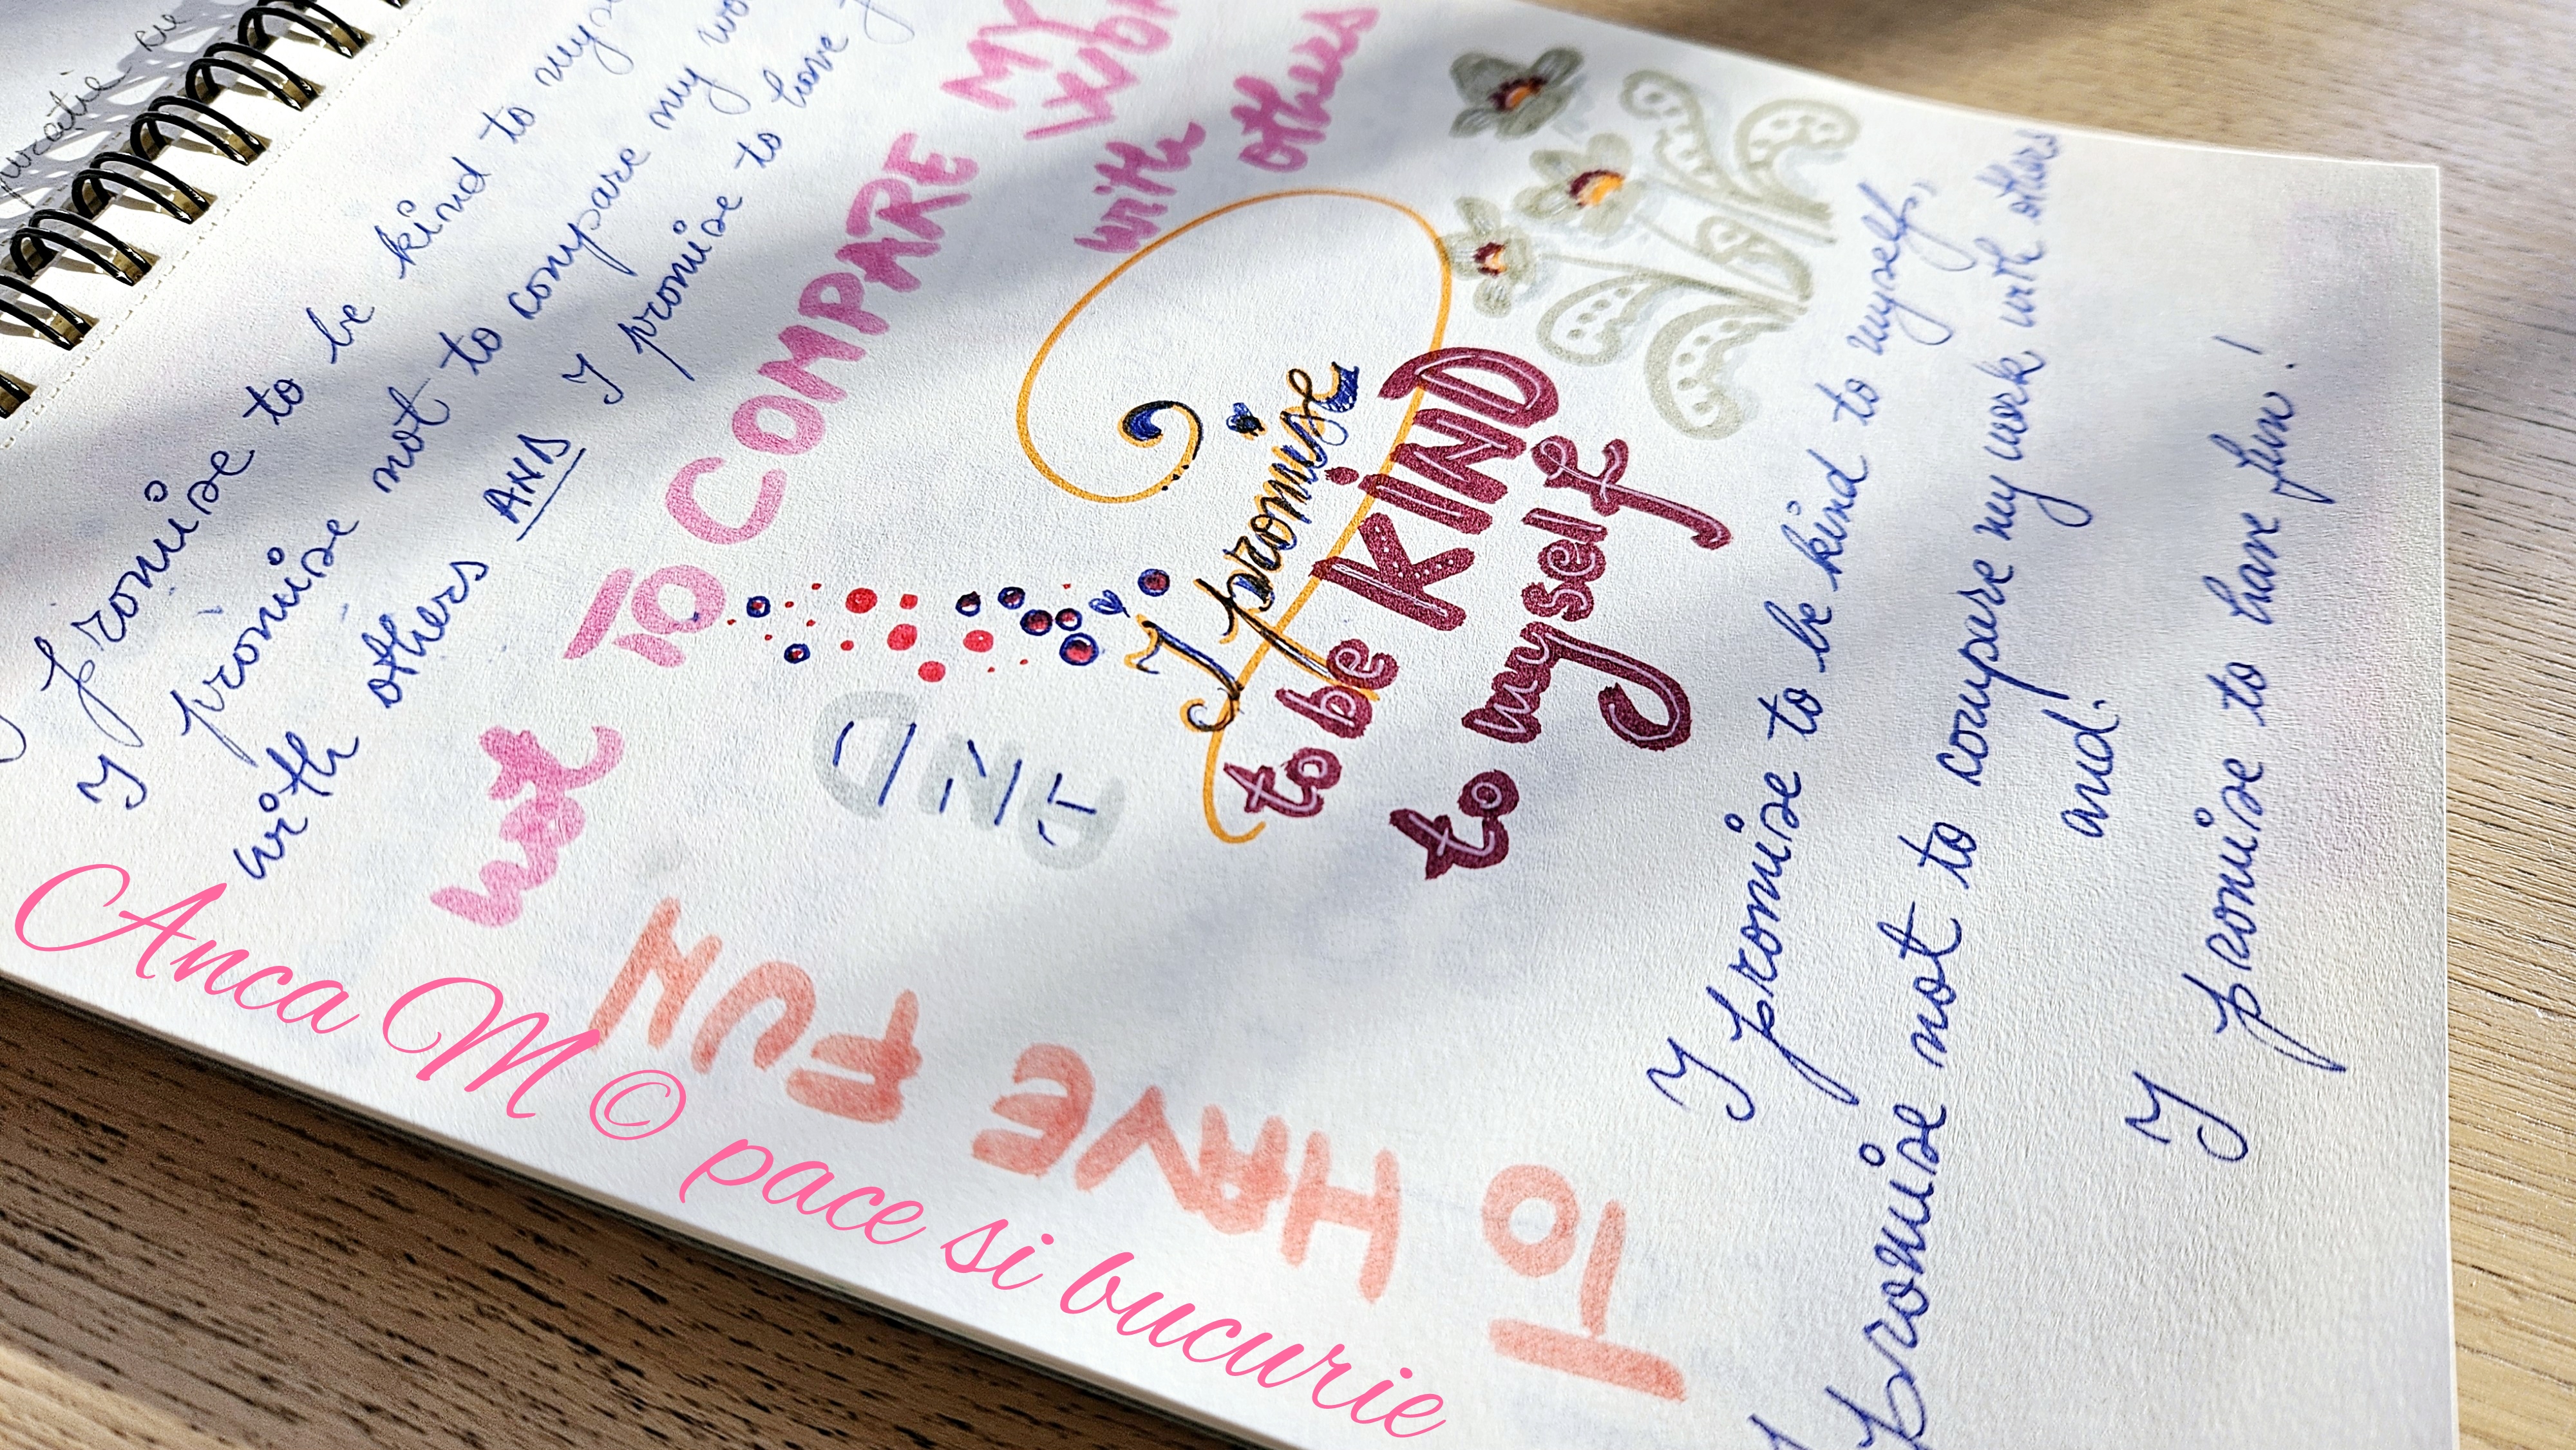 I promise to be kind to
I promise not to compare my
with others AND I promise to have
not TO COMPARE MY
with others
I promise
to be KIND
to myself
AND
TO HAVE FUN
I promise to be kind to myself,
promise not to compere my work with others
and
I promise to have fun!
Anca M © pace si bucurie